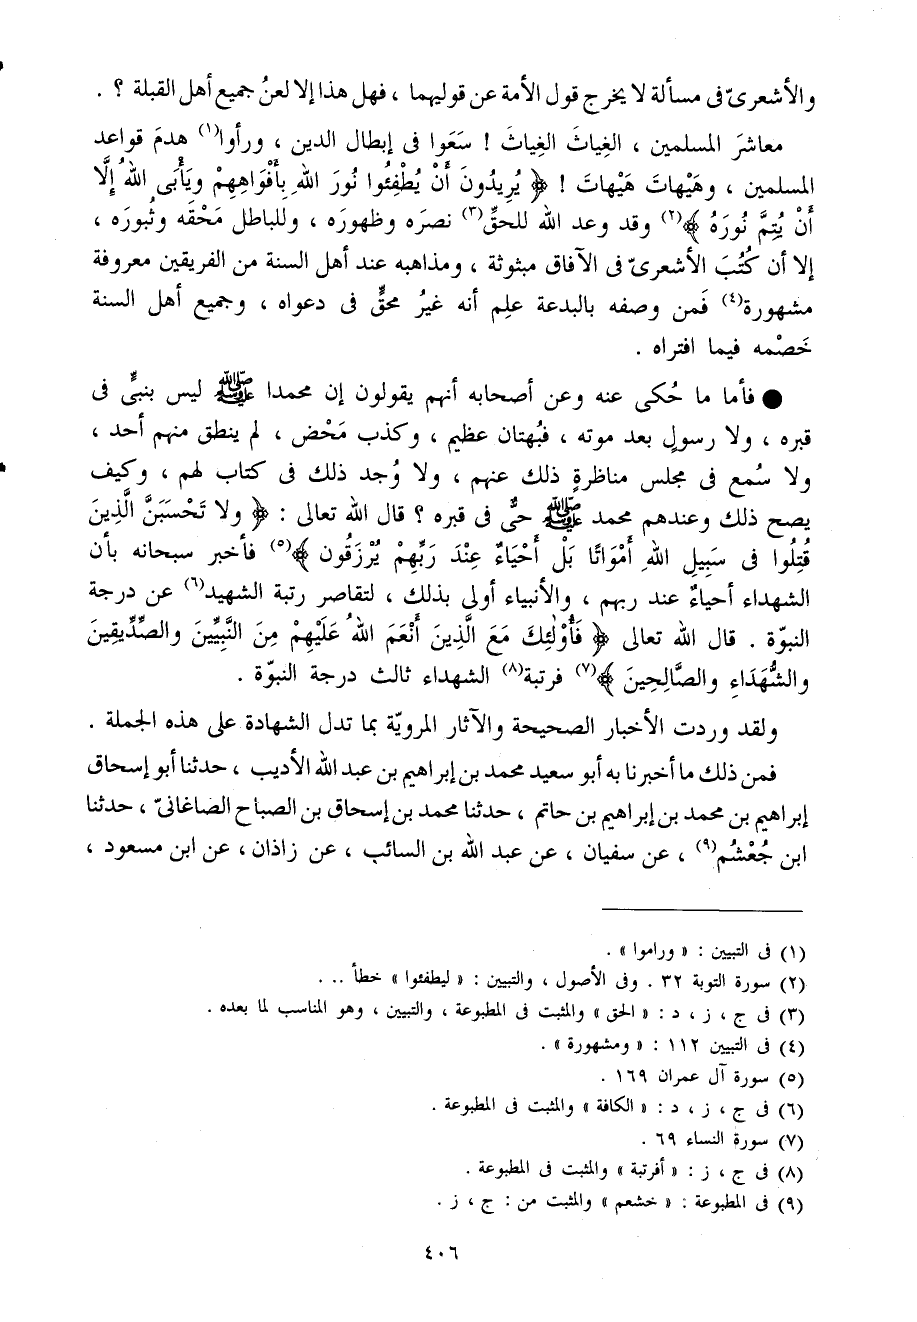 والأشعرىّ فى مسألة لا يخرج قول الأمة عن قوليهما ، فهل هذا إلا لعنُ جميع أهل القبلة ؟ .
معاشرَ المسلمين ، الغِياثَ الغِياثَ ! سَعَوا فى إبطال الدين ، ورأوا(١) هدمَ قواعد
المسلمين ، وهَيهاتَ هَيْهاتَ ! ﴿ يُرِيدُونَ أَنْ يُطْفِئُوا نُورَ اللهِ بِأَفْوَاهِهِمْ ويَأْبَى اللهُ إلَّا
أَنْ يُتِمَّ نُورَهُ ﴾(٢) وقد وعد الله للحقِّ(٣) نصرَه وظهورَه ، وللباطل مَحْقَه وثُبورَه ،
إلا أن كُتُبَ الأشعرىّ فى الآفاق مبثوثة ، ومذاهبه عند أهل السنة من الفريقين معروفة
مشهورة(٤) فَمن وصفه بالبدعة علِم أنه غيرُ محقٍّ فى دعواه ، وجميع أهل السنة
خَصْمه فيما افتراه .
● فأما ما حُكى عنه وعن أصحابه أنهم يقولون إن محمدا ﷺ ليس بنبىٍّ فى
قبره ، ولا رسولٍ بعد موته ، فبُهتان عظيم ، وكذب مَحْض ، لم ينطق منهم أحد ،
ولا سُمع فى مجلس مناظرةٍ ذلك عنهم ، ولا وُجد ذلك فى كتاب لهم ، وكيف
يصح ذلك وعندهم محمد ﷺ حىٌّ فى قبره ؟ قال الله تعالى : ﴿ ولا تَحْسَبَنَّ الَّذِينَ
قُتِلُوا فى سَبِيلِ اللهِ أَمْوَاتًا بَلْ أَحْيَاءٌ عِنْدَ رَبِّهِمْ يُرْزَقُون ﴾(٥) فأخبر سبحانه بأن
الشهداء أحياءٌ عند ربهم ، والأنبياء أولى بذلك ، لتقاصر رتبة الشهيد(٦) عن درجة
النبوّة . قال الله تعالى ﴿ فَأُوْلٰئِكَ مَعَ الَّذِينَ أَنْعَمَ اللهُ عَلَيْهِمْ مِنَ النَّبِيِّينَ والصِّدِّيقِينَ
والشُّهَدَاءِ والصَّالِحِينَ ﴾(٧) فرتبة(٨) الشهداء ثالث درجة النبوّة .
ولقد وردت الأخبار الصحيحة والآثار المرويّة بما تدل الشهادة على هذه الجملة .
فمن ذلك ما أخبرنا به أبو سعيد محمد بن إبراهيم بن عبد الله الأديب ، حدثنا أبو إسحاق
إبراهيم بن محمد بن إبراهيم بن حاتم ، حدثنا محمد بن إسحاق بن الصباح الصاغانىّ ، حدثنا
ابن جُعْشُم(٩) ، عن سفيان ، عن عبد الله بن السائب ، عن زاذان ، عن ابن مسعود ،
(١) فى التبيين : « وراموا » .
(٢) سورة التوبة ٣٢ . وفى الأصول ، والتبيين : « ليطفئوا » خطأ .. .
(٣) فى ج ، ز ، د : « الحق » والمثبت فى المطبوعة ، والتبيين ، وهو المناسب لما بعده .
(٤) فى التبيين ١١٢ : « ومشهورة » .
(٥) سورة آل عمران ١٦٩ .
(٦) فى ج ، ز ، د : « الكافة » والمثبت فى المطبوعة .
(٧) سورة النساء ٦٩ .
(٨) فى ج ، ز : « أفرتبة » والمثبت فى المطبوعة .
(٩) فى المطبوعة : « خشعم » والمثبت من : ج ، ز .
٤٠٦